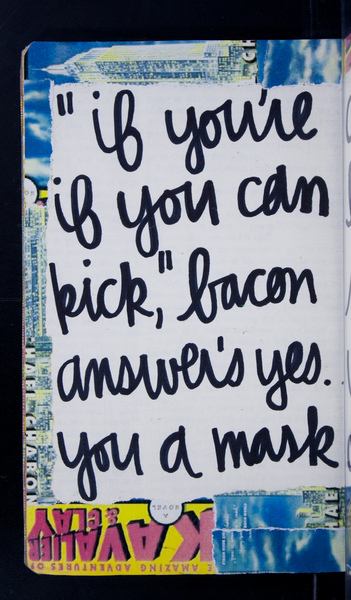 CH
"if you're
if you can
kick," bacon
answer's yes.
you a mask
HAEL CHABON
HAE
A NOVEL
THE AMAZING ADVENTURES OF
KAVALIER
& CLAY